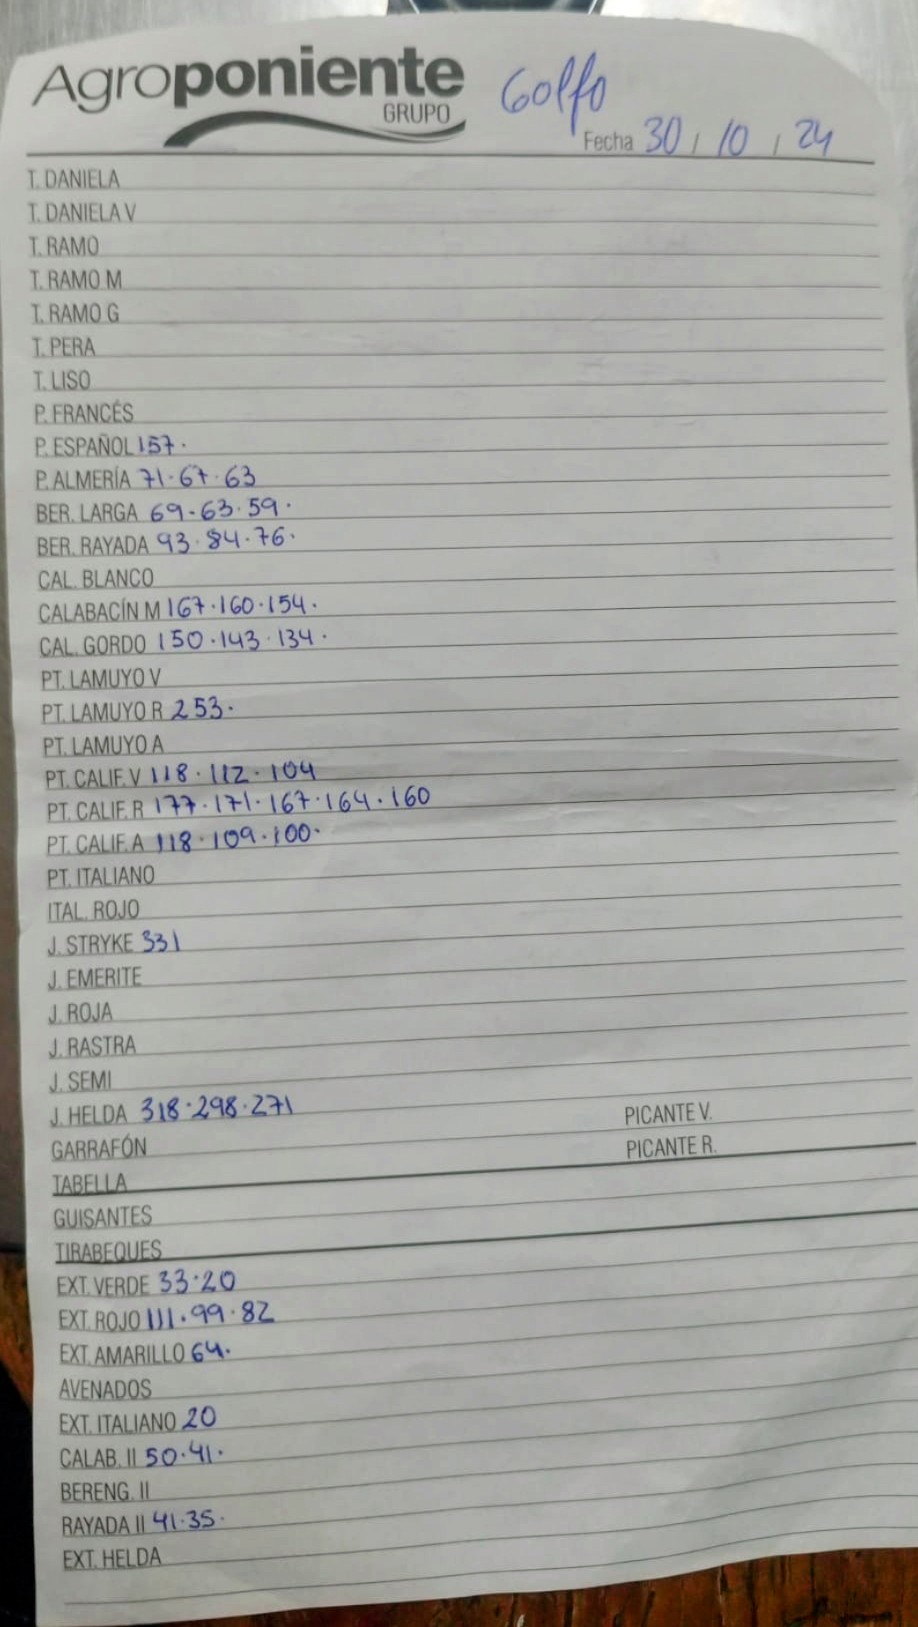 Agroponiente
GRUPO
Golfo
Fecha 30 / 10 / 24
T. DANIELA
T. DANIELA V
T. RAMO
T. RAMO M
T. RAMO G
T. PERA
T. LISO
P. FRANCÉS
P. ESPAÑOL 157.
P. ALMERÍA 71.67.63
BER. LARGA 69.63.59.
BER. RAYADA 93.84.76.
CAL. BLANCO
CALABACÍN M 167.160.154.
CAL. GORDO 150.143.134.
PT. LAMUYO V
PT. LAMUYO R 253.
PT. LAMUYO A
PT. CALIF. V 118.112.104
PT. CALIF. R 177.171.167.164.160
PT. CALIF. A 118.109.100.
PT. ITALIANO
ITAL. ROJO
J. STRYKE 331
J. EMERITE
J. ROJA
J. RASTRA
J. SEMI
J. HELDA 318.298.271 PICANTE V.
GARRAFÓN PICANTE R.
TABELLA
GUISANTES
TIRABEQUES
EXT. VERDE 33.20
EXT. ROJO 111.99.82
EXT. AMARILLO 64.
AVENADOS
EXT. ITALIANO 20
CALAB. II 50.41.
BERENG. II
RAYADA II 41.35.
EXT. HELDA